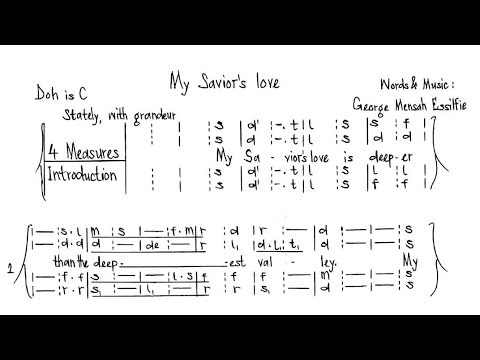 My Savior's love
Doh is C
Words & Music :
Stately, with grandeur
George Mensah Essilfie
: | : | : s | d' :-. t | l : s | s : f
: | : | : s | d' :-. t | l : s | d : d
4 Measures My Sa - vior's love is deep-er
Introduction : | : | : s | d' :-. t | l : s | l : l
: | : | : s | d' :-. t | l : s | f : f
| — : s . l | m : s | — : f . m | r : d | r : — | d : — | — : s
| — : d . d | d : — | de : — | r : l₁ | d . l₁ : t₁ | d : — | — : s
1 than the deep - est val - ley. My
| — : f . f | s : — | — : l . s | f : f | f : — | m : — | — : s
| — : r . r | s₁ : — | l₁ : — | r : r | s₁ : — | d : — | — : s